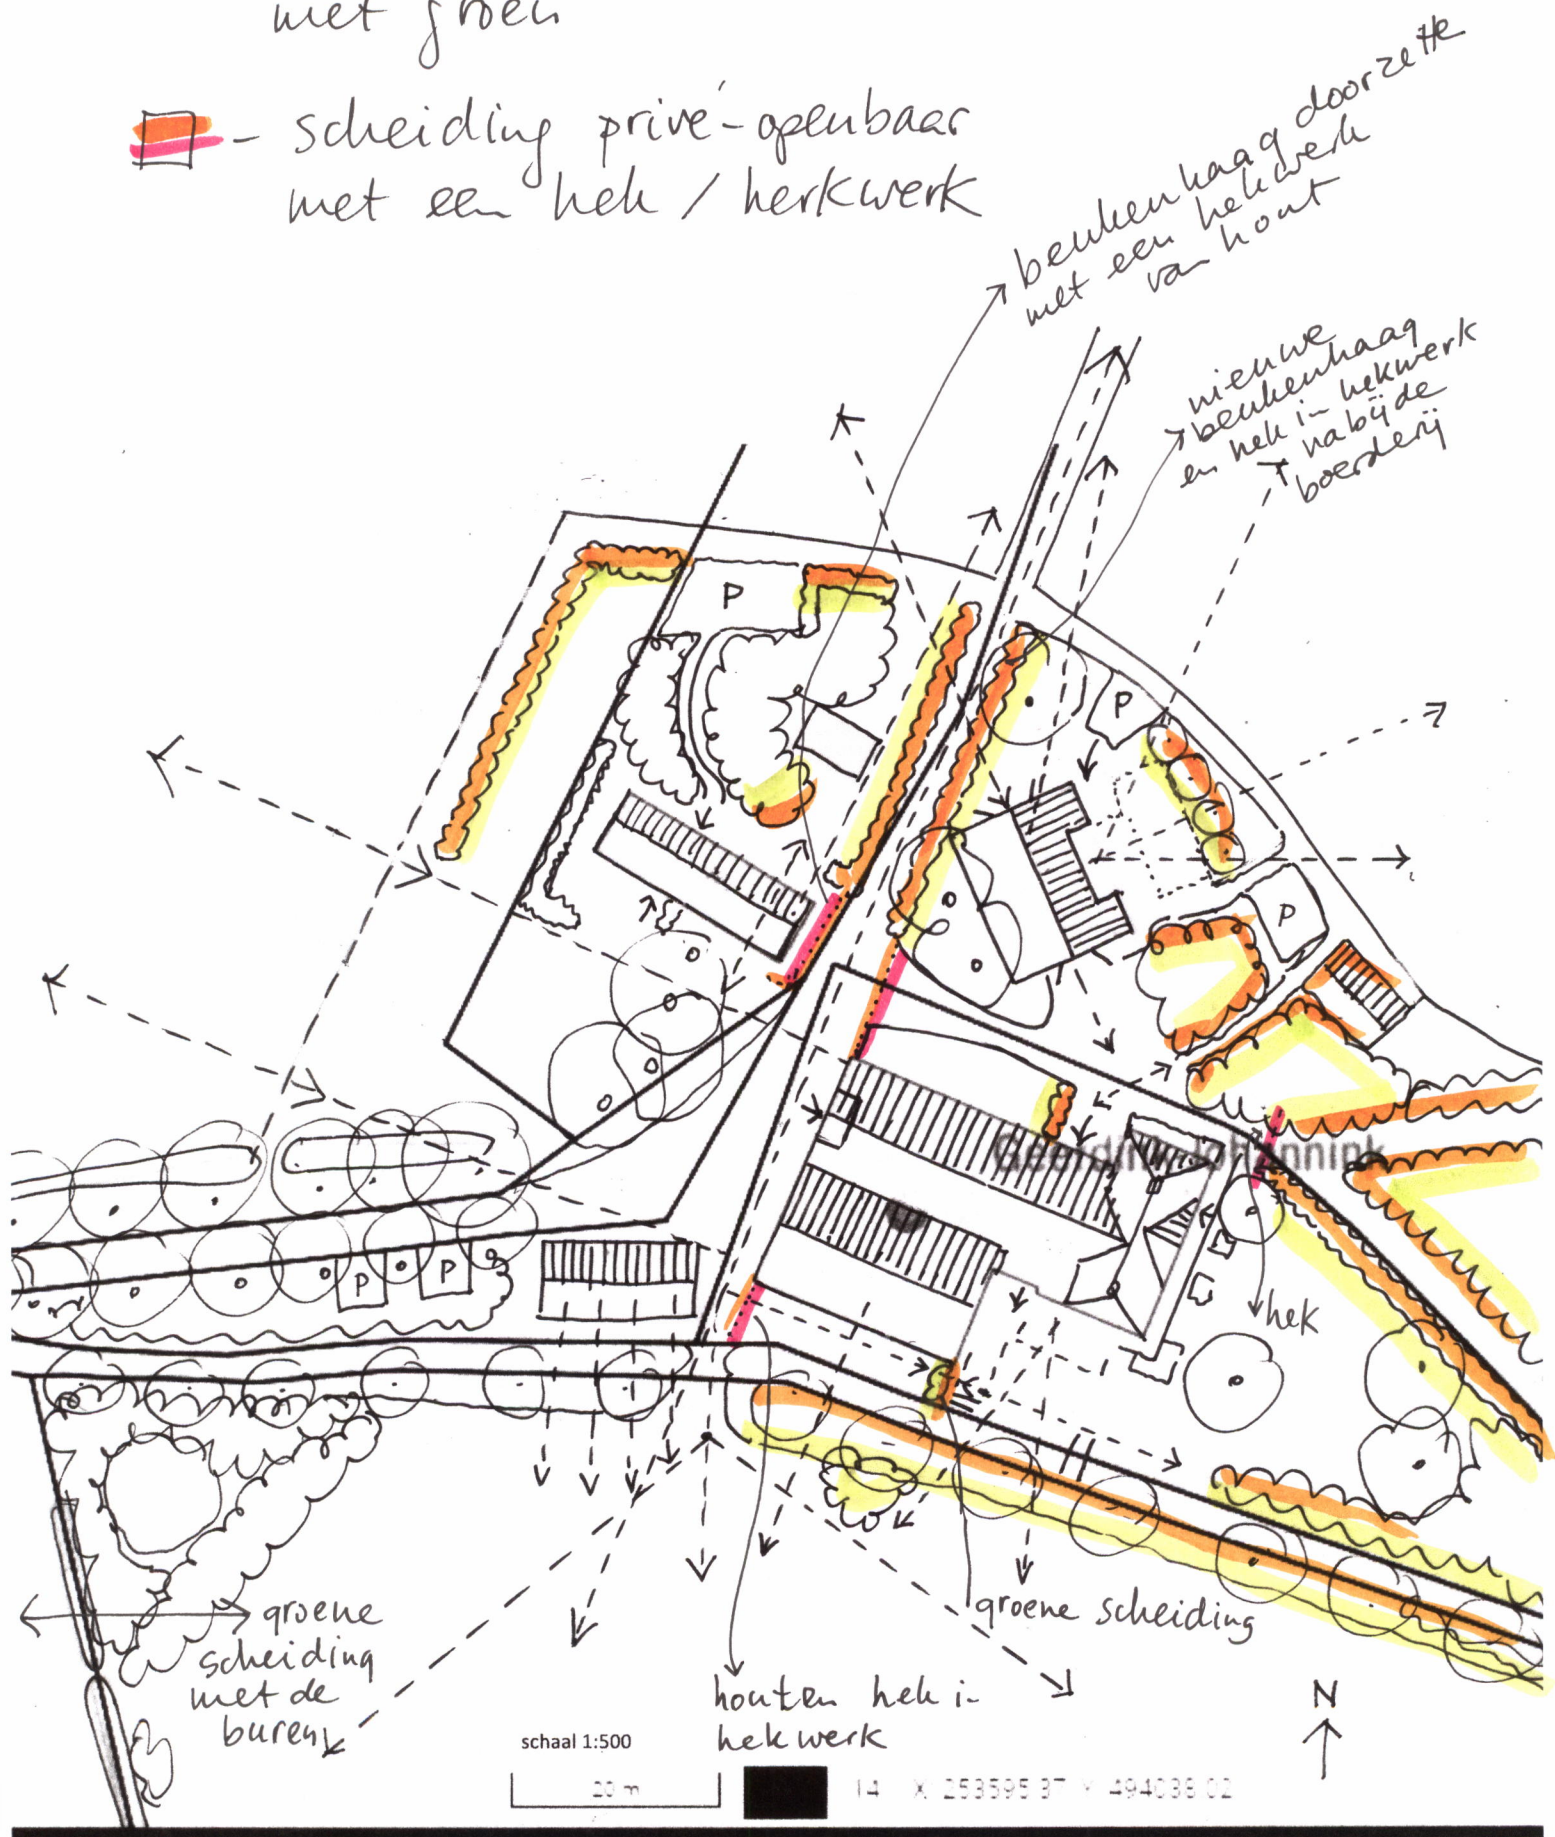 met groen
- scheiding privé-openbaar
met een hek / herkwerk
beukenhaag doorzette
met een hekwerk
van hout
nieuwe
beukenhaag
en hek in hekwerk
nabij de
boerderij
P
P
P
P
P
hek
groene
scheiding
met de
buren
groene scheiding
houten hek in
hekwerk
N
schaal 1:500
20 m
14 X: 253595.37 Y: 494038.02